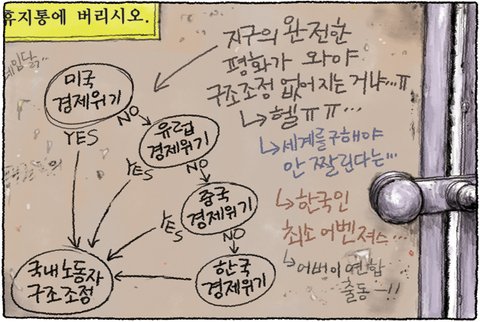 휴지통에 버리시오.
미국
경제위기
YES
NO
유럽
경제위기
YES
NO
중국
경제위기
YES
NO
한국
경제위기
국내노동자
구조조정
지구의 완전한
평화가 와야
구조조정 없어지는 거냐...ㅠ
헬ㅠㅠ...
세계를구해야
안 짤린다는...
한국인
최소 어벤져스...
어벙이연합
출동—!!